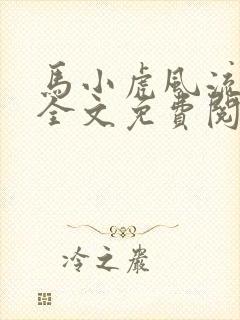 馬小虎風流
全文免費閱
冷之巖